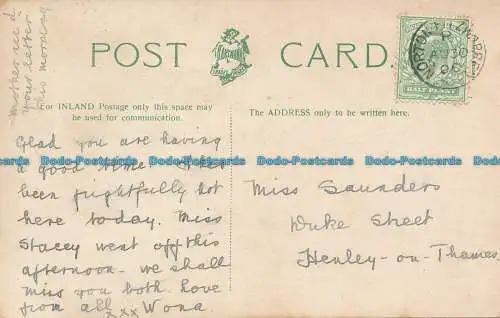 Mother rec'd
your letter
this morning
POST CARD.
For INLAND Postage only this space may
be used for communication.
The ADDRESS only to be written here.
HALF PENNY
NORTON FITZWARREN
Dodo-Postcards Dodo-Postcards Dodo-Postcards Dodo-Postcards Dodo-Postcards
Glad you are having
a good time. It has
been frightfully hot
here today. Miss
Stacey went off this
afternoon - we shall
miss you both. Love
from all xxx Wona.
Miss Saunders
Duke Street
Henley-on-Thames